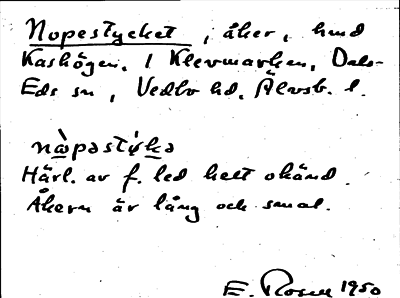 Nopestycket, åker, hmd
Kashögen. / Klevmarken, Dals-
Eds sn, Vedbo hd. Älvsb. l.
nὼpəstẏkə
Härl. av f. led helt okänd.
Åkern är lång och smal.
E. Rosell 1950